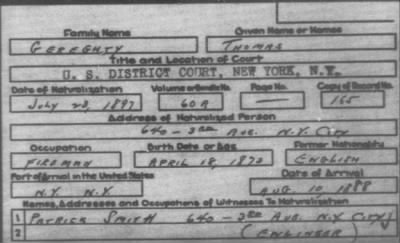 Family Name Given Name or Names
GEREGHTY THOMAS
Title and Location of Court
U. S. DISTRICT COURT, NEW YORK, N.Y.
Date of Naturalization Volume or Bundle No. Page No. Copy of Record No.
JULY 23, 1897 60A — 165
Address of Naturalized Person
640 - 3RD AVE. N.Y. CITY
Occupation Birth Date or Age Former Nationality
FIREMAN APRIL 18, 1872 ENGLISH
Port of Arrival in the United States Date of Arrival
N.Y. N.Y. AUG. 10, 1888
Names, Addresses and Occupations of Witnesses To Naturalization
1 PATRICK SMITH 640 - 3RD AVE. N.Y. CITY
2 (ENGINEER)